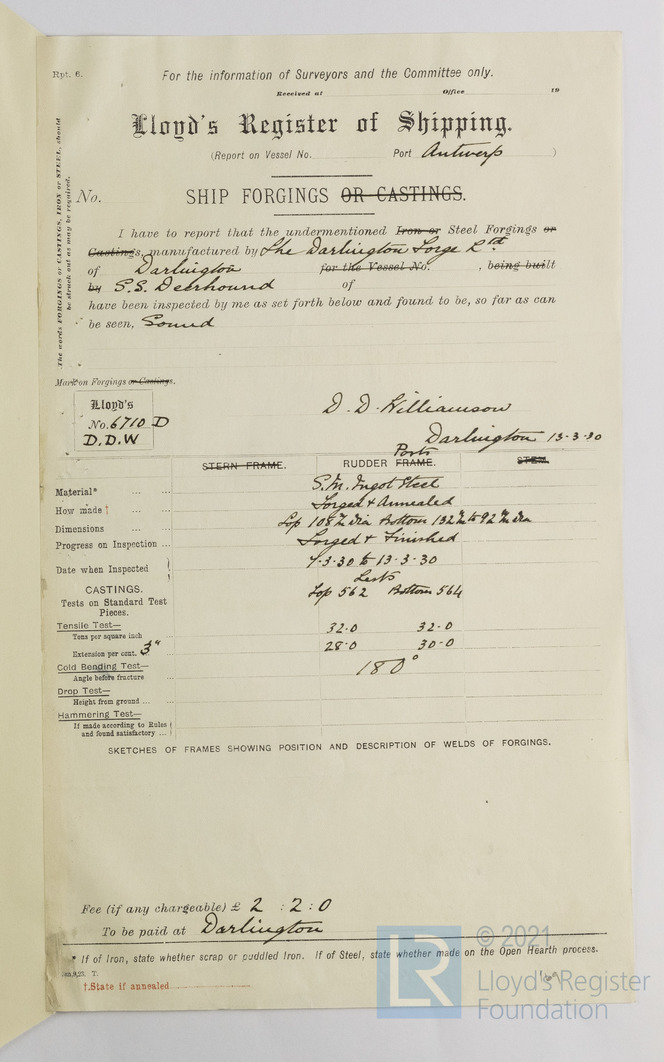 Rpt. 6.
For the information of Surveyors and the Committee only.
Received at Office 19
Lloyd's Register of Shipping.
(Report on Vessel No. Port Antwerp )
No. SHIP FORGINGS OR CASTINGS.
The words FORGINGS or CASTINGS, IRON or STEEL, should
be struck out as may be required.
I have to report that the undermentioned Iron or Steel Forgings or
Castings, manufactured by The Darlington Forge Ltd
of Darlington for the Vessel No. , being built
by S.S. Deerhound of
have been inspected by me as set forth below and found to be, so far as can
be seen, Sound
Mark on Forgings or Castings.
Lloyd's
No. 6710 D
D.D.W
D. D. Williamson
Darlington 13-3-30
Parts
STERN FRAME. RUDDER FRAME. STEM.
Material* ... ... S.M. Ingot Steel
How made† ... ... Forged & Annealed
Dimensions ... ... Top 108 m/m dia Bottom 132 m/m to 92 m/m dia
Progress on Inspection ... Forged & Finished
Date when Inspected 7-3-30 to 13-3-30
Tests
CASTINGS. Top 562 Bottom 564
Tests on Standard Test
Pieces.
Tensile Test—
Tons per square inch ... 32.0 32.0
Extension per cent. 3" ... 28.0 30.0
Cold Bending Test— 180°
Angle before fracture ...
Drop Test—
Height from ground ... ...
Hammering Test—
If made according to Rules
and found satisfactory ...
SKETCHES OF FRAMES SHOWING POSITION AND DESCRIPTION OF WELDS OF FORGINGS.
Fee (if any chargeable) £ 2 : 2 : 0
To be paid at Darlington
* If of Iron, state whether scrap or puddled Iron. If of Steel, state whether made on the Open Hearth process.
†.State if annealed
© 2021
LR
Lloyd's Register
Foundation